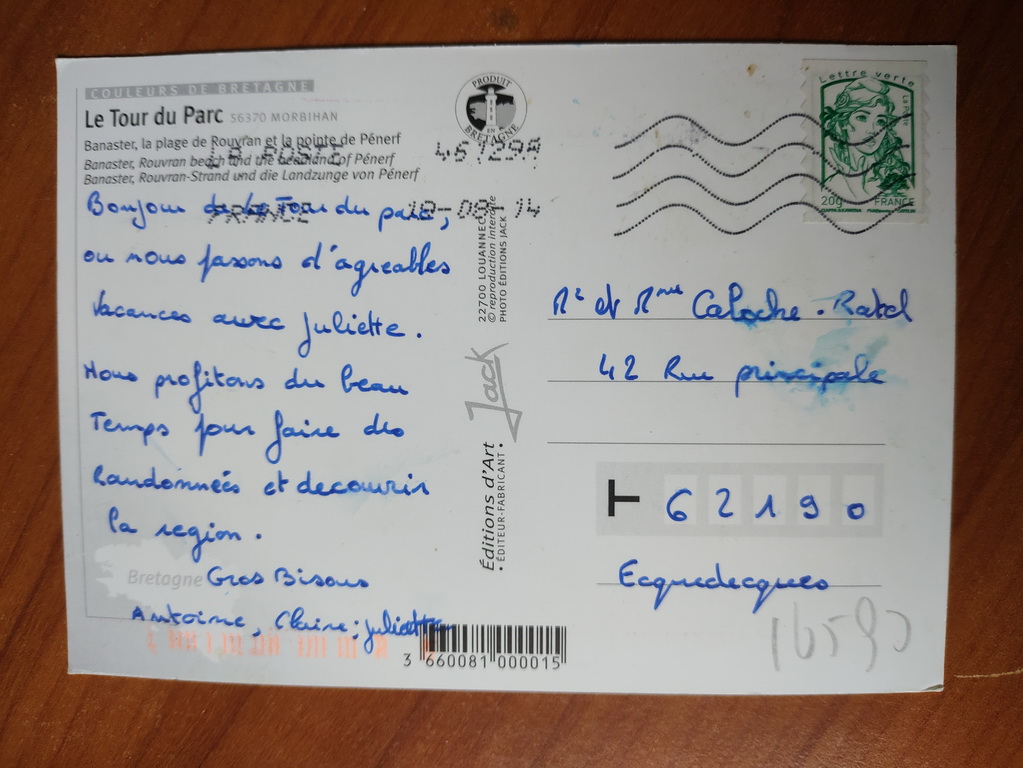 COULEURS DE BRETAGNE
Le Tour du Parc 56370 MORBIHAN
Banaster, la plage de Rouvran et la pointe de Pénerf
Banaster, Rouvran beach and the headland of Pénerf
Banaster, Rouvran-Strand und die Landzunge von Pénerf
LA POSTE
46729A
FRANCE
18-08-14
Bonjour de la Tour du parc,
ou nous passons d'agreables
Vacances avec Juliette.
Nous profitons du beau
Temps pour faire des
Randonnées et decouvrir
la region.
Gros Bisous
Antoine, Claire, juliette
Bretagne
3 660081 000015
PRODUIT EN BRETAGNE
22700 LOUANNEC
© reproduction interdite
PHOTO ÉDITIONS JACK
Jack
Éditions d'Art
• ÉDITEUR-FABRICANT •
Lettre verte
LA POSTE
20g
FRANCE
Mr et Mme Caloche-Ratel
42 Rue principale
62190
Ecquedecques
16590